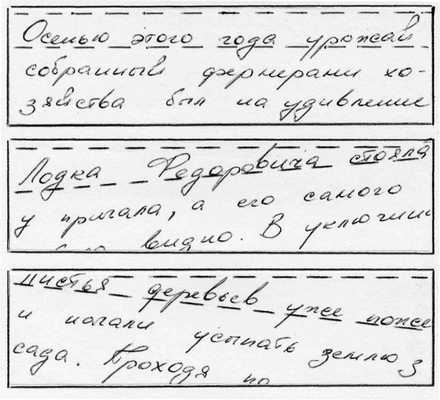 Осенью этого года урожай
собранный фермерами хо-
зяйства был на удивление
Лодка Федоровича стояла
у причала, а его самого
видно. В уключин
листья деревьев уже поже
и начали усыпать землю з
сада. Проходя по